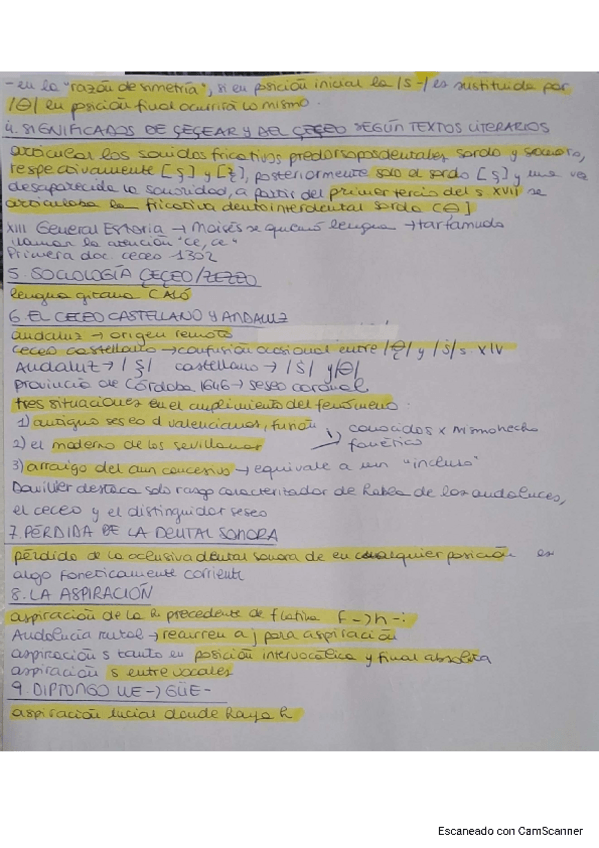 - en la "razón de simetría", si en posición inicial la /s-/ es sustituida por
/θ/ en posición final ocurrirá lo mismo.
4. SIGNIFICADOS DE ÇEÇEAR Y DEL ÇEÇEO SEGÚN TEXTOS LITERARIOS
articular los sonidos fricativos predorsoposdentales, sordo y sonoro,
respectivamente [ş] y [z̧], posteriormente solo el sordo [ş] y una vez
desaparecida la sonoridad, a partir del primer tercio del s XVII se
articulaba la fricativa dentointerdental sorda [θ]
XIII General Estoria → Moisés se quemó lengua → tartamudo
llamar la atención "ce, ce"
Primera doc. ceceo 1302
5. SOCIOLOGÍA ÇEÇEO/ZEZEO
lengua gitana CALÓ
6. EL CECEO CASTELLANO Y ANDALUZ
andaluz → origen remoto
ceceo castellano → confusión ocasional entre y /ṡ/ s. XIV
Andaluz → /ş/ castellano → /ṡ/ y /θ/
provincia de Córdoba 1646 → seseo coronal
tres situaciones en el cumplimiento del fenómeno
1) antiguo seseo d valencianos, fusión
conocidos x mismo hecho
2) el moderno de los sevillanos
fonético
3) arraigo del aun concesivo → equivale a un "incluso"
Davillier destaca solo rasgo caracterizador de habla de los andaluces,
el ceceo y el distinguidor seseo
7. PÉRDIDA DE LA DENTAL SONORA
pérdida de la oclusiva dental sonora de en cualquier posición es
algo foneticamente corriente
8. LA ASPIRACIÓN
aspiración de la h precedente de f latina f- → h-:
Andalucía rural → recurren a j para aspiración
aspiración s tanto en posición intervocálica y final absoluta
aspiración s entre vocales
9. DIPTONGO UE- → GÜE-
aspiración inicial donde haya h
Escaneado con CamScanner